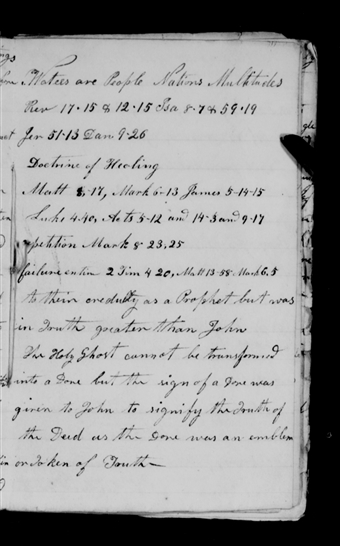 Waters are People Nations Multitudes
Rev 17.15 & 12.15 Isa 8.7 & 59.19
Jer 51.13 Dan 9.26
Doctrine of Healing
Matt 8.17, Mark 6.13 James 5.14.15
Luke 4.40, Acts 5.12 and 14.3 and 9.17
petition Mark 8 23,25
failure 2 Tim 4 20, Matt 13.58. Mark 6.5
to their credulty as a Prophet but was
in Truth greater than John
The Holy Ghost cannot be transformed
into a Dove but the sign of a Dove was
given to John to signify the Truth of
the Deed as the Dove was an emblem
or Token of Truth